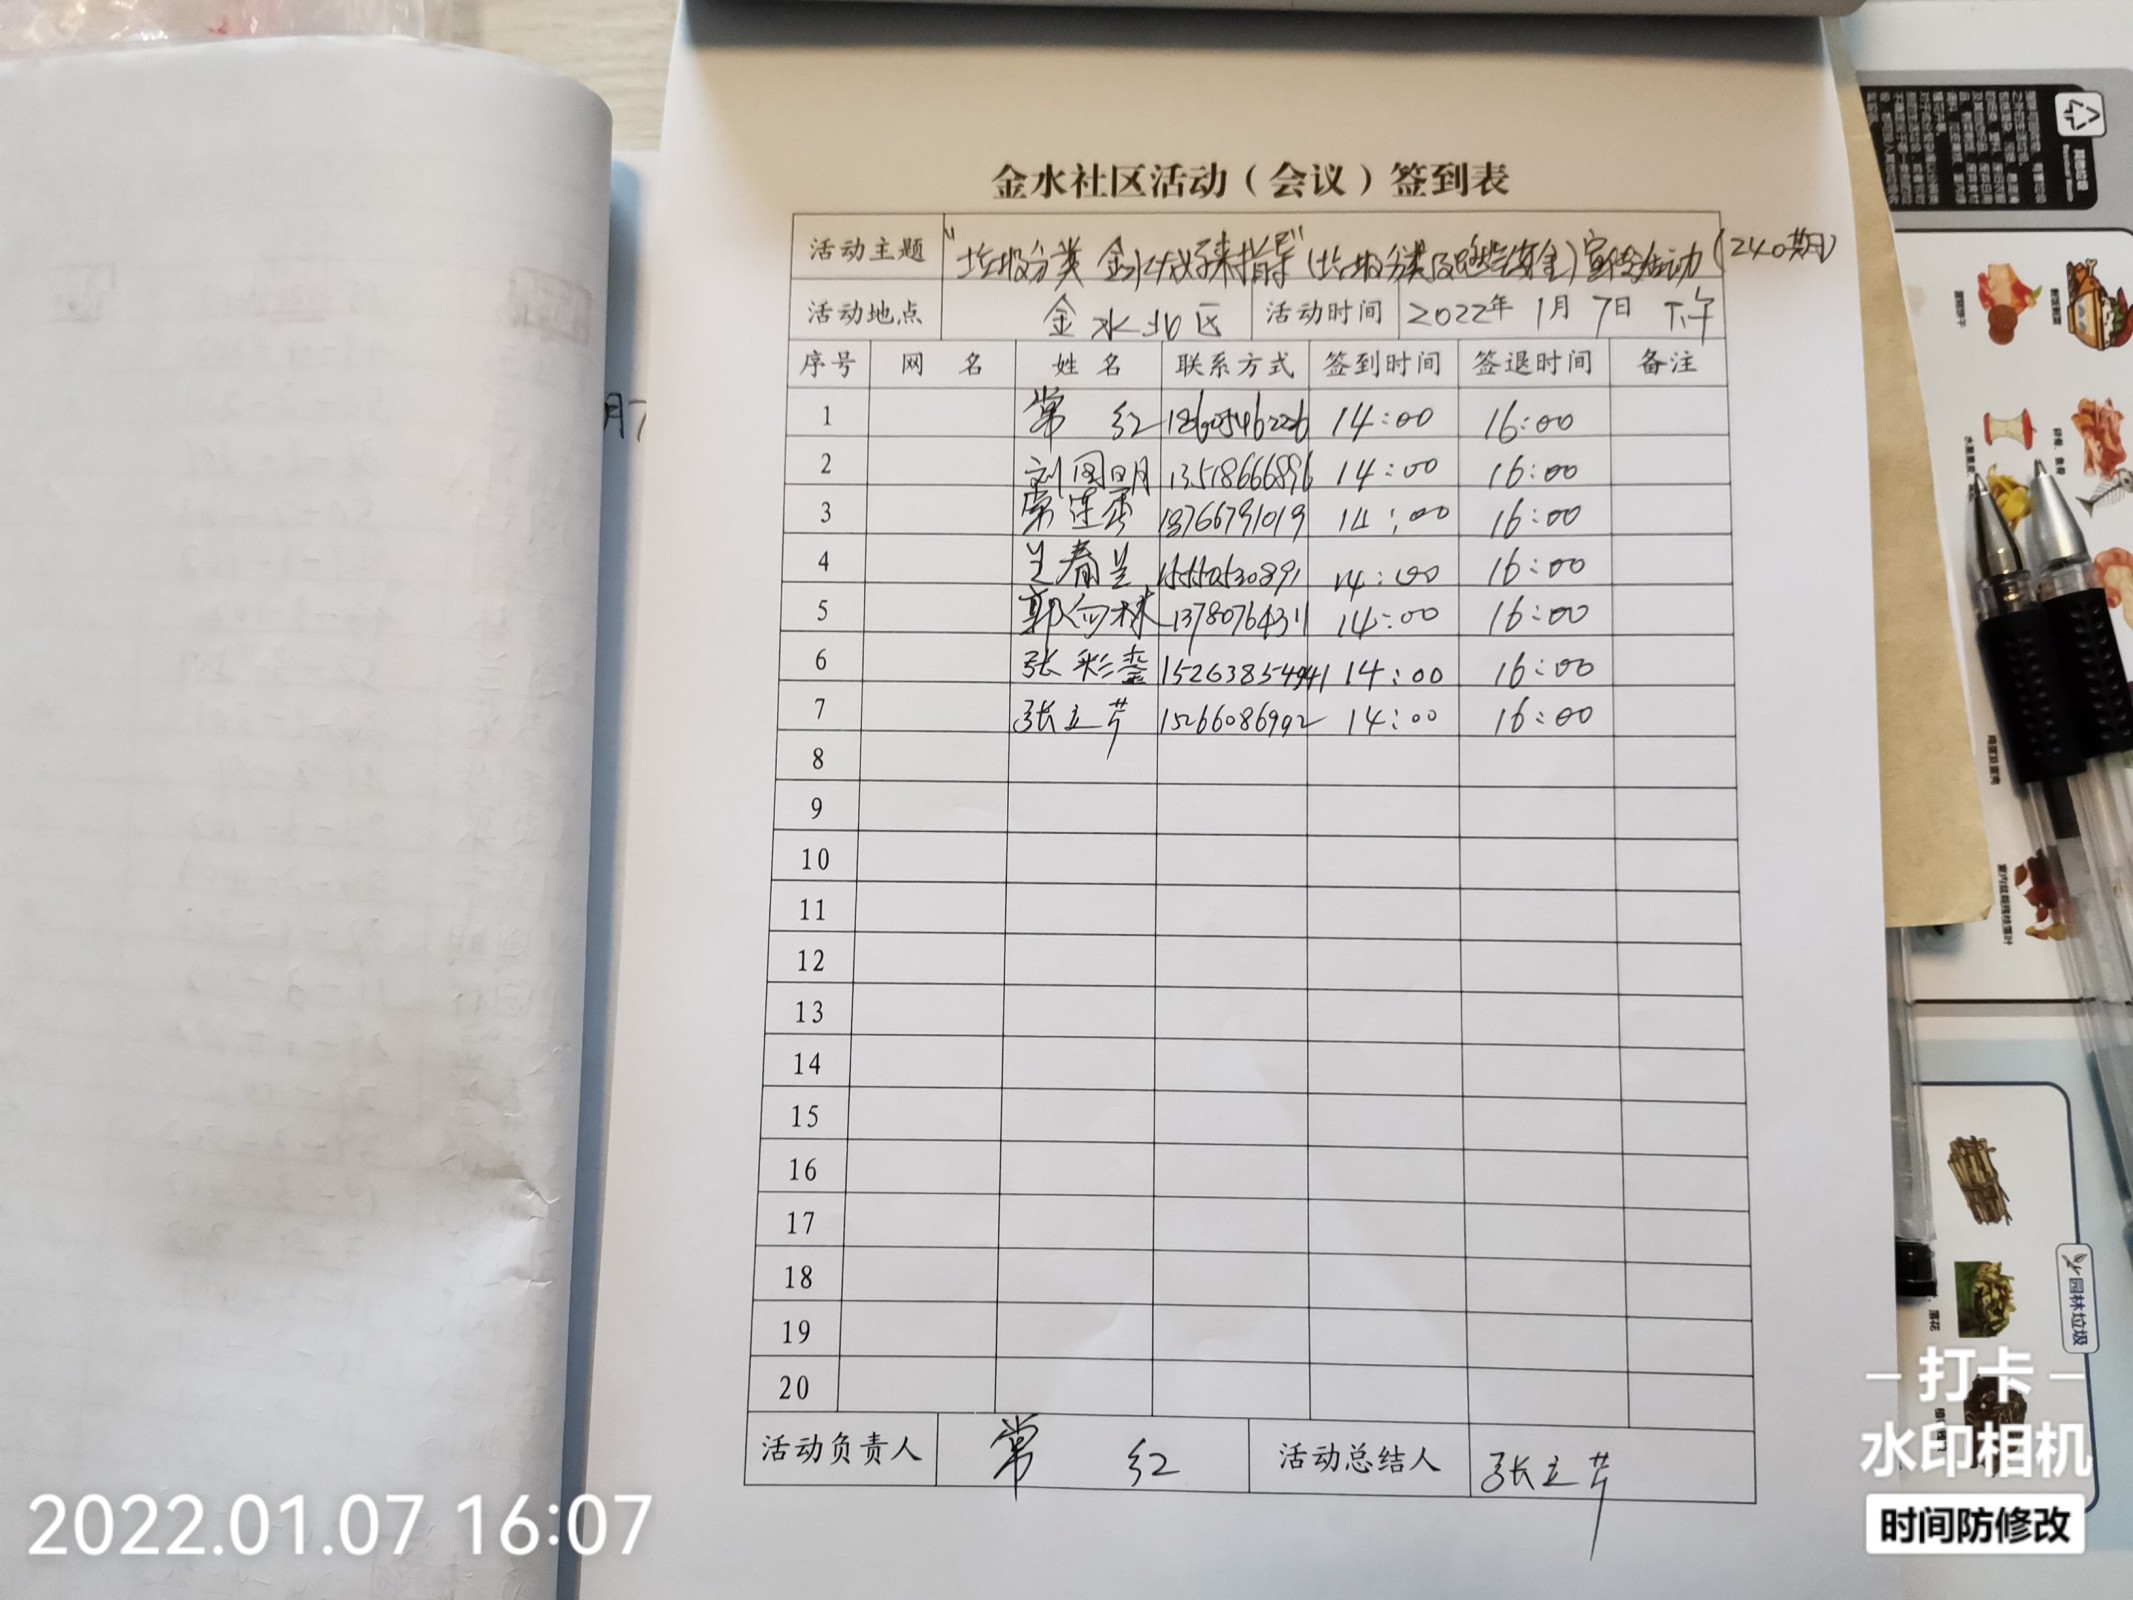 金水社区活动（会议）签到表
活动主题 "垃圾分类 金水大家来指导"（垃圾分类及燃气安全）宣传活动（240期）
活动地点 金水北区 活动时间 2022年1月7日 下午
序号 网 名 姓 名 联系方式 签到时间 签退时间 备注
1 常 红 18605462226 14:00 16:00
2 刘国明 13518666896 14:00 16:00
3 常连秀 18766791019 14:00 16:00
4 兰春兰 15550530891 14:00 16:00
5 郭向林 1378076431 14:00 16:00
6 张彩銮 14:00 16:00
7 张立芹 15266086902 14:00 16:00
8
9
10
11
12
13
14
15
16
17
18
19
20
活动负责人 常 红 活动总结人 张立芹
月7
园林垃圾
落花
2022.01.07 16:07
打卡
水印相机
时间防修改